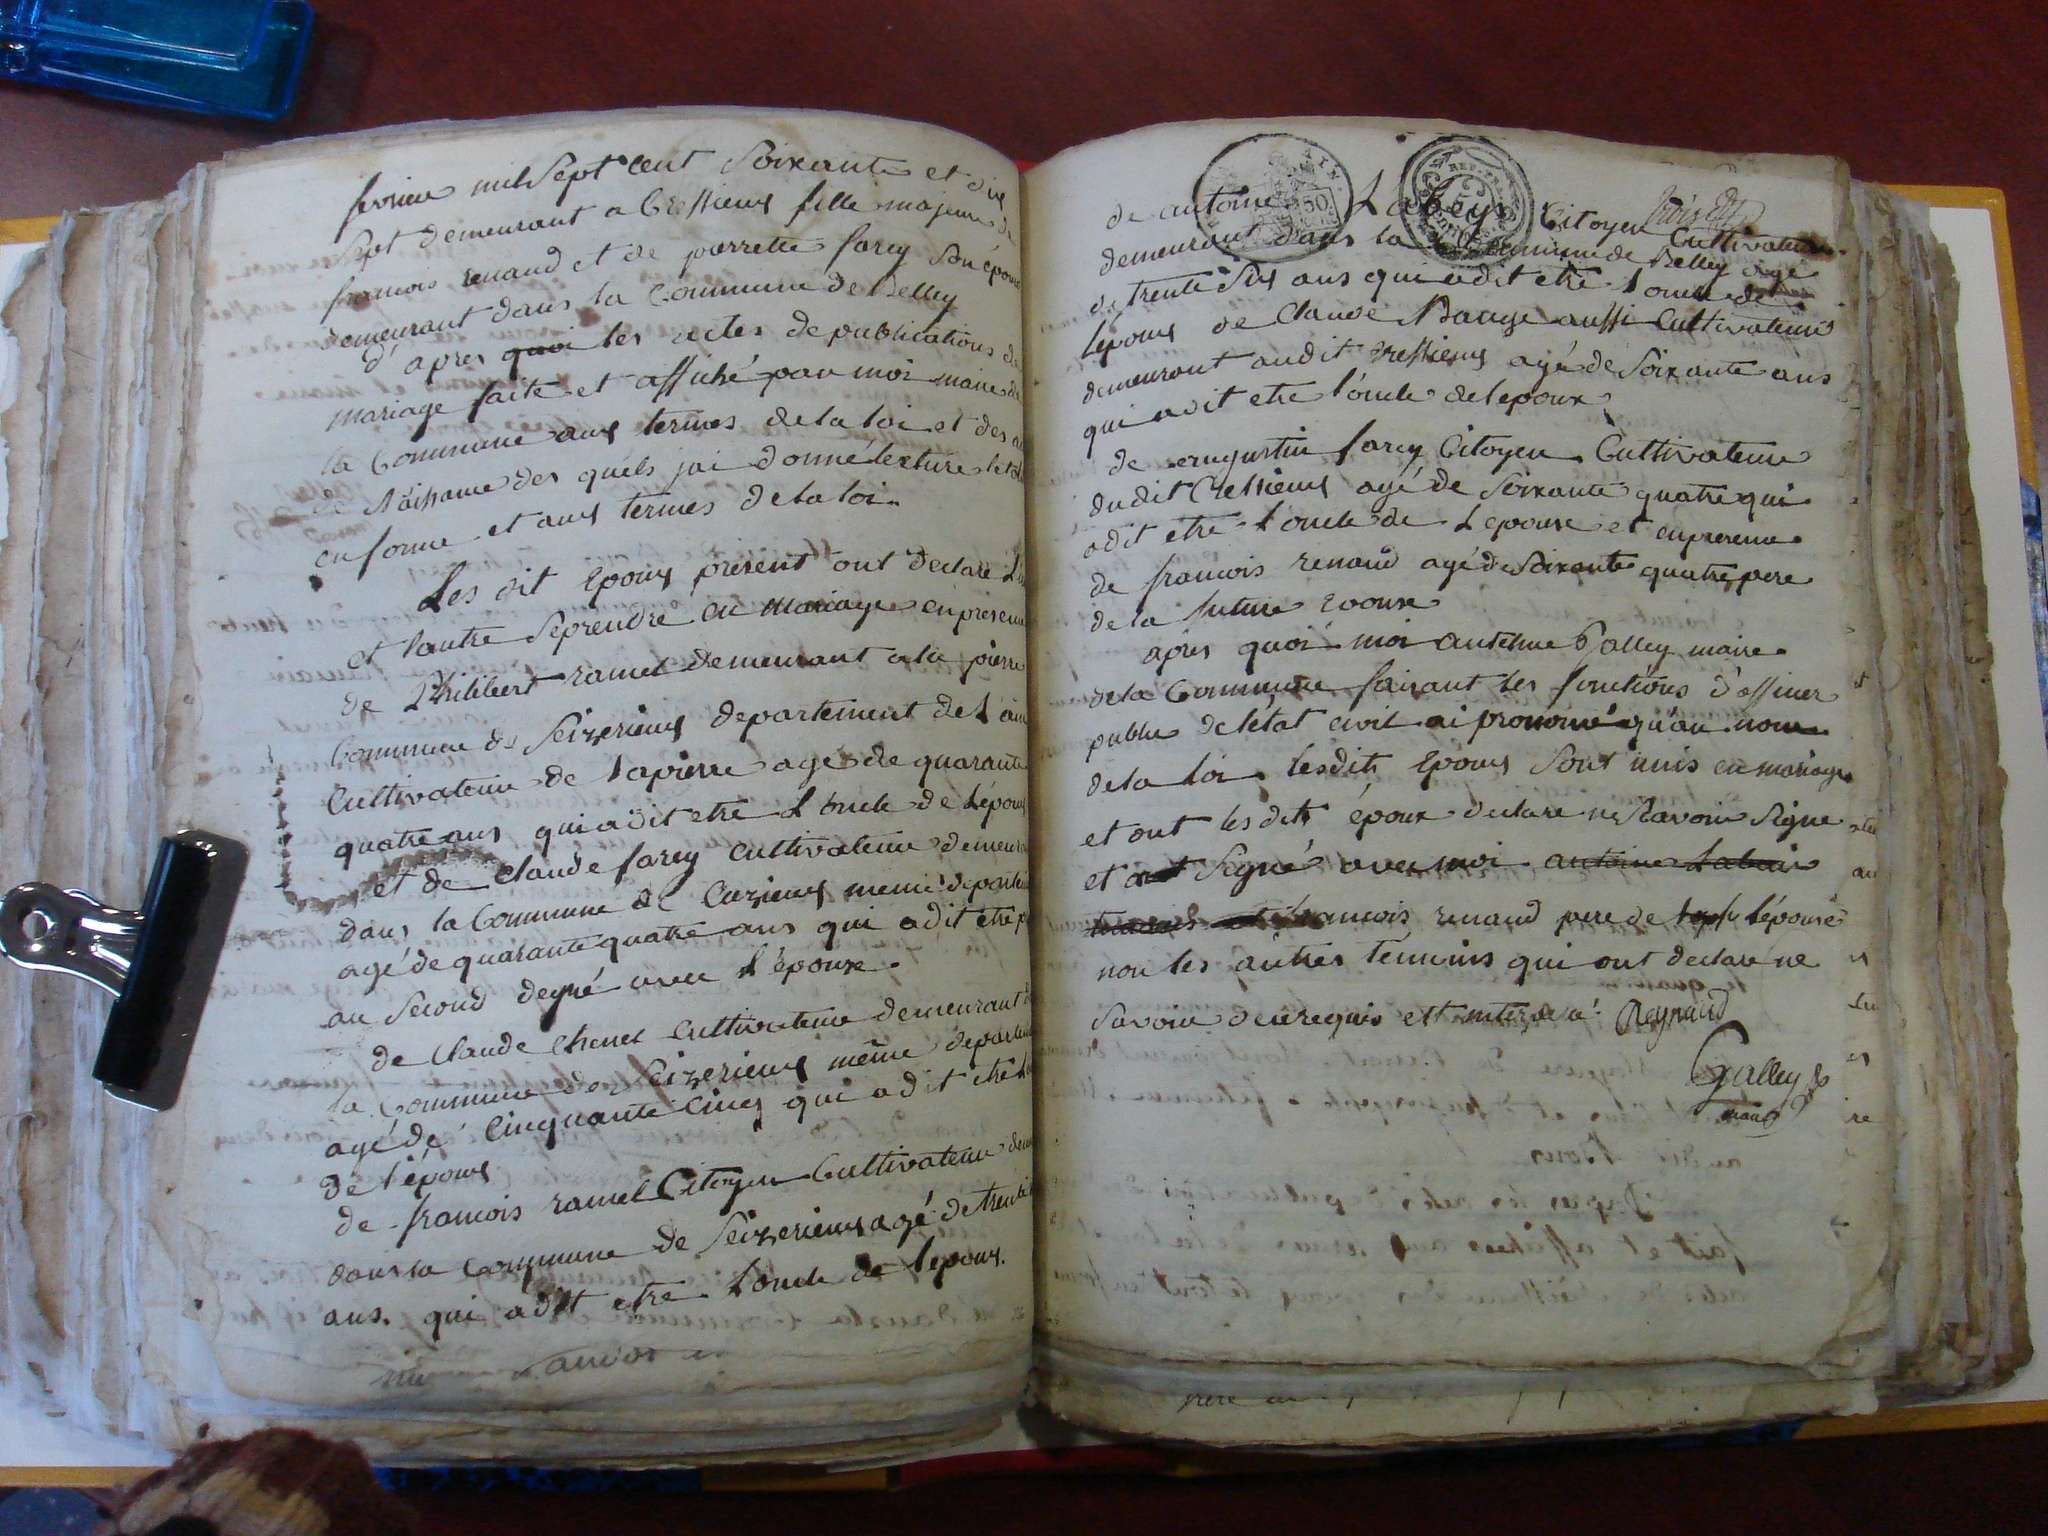 fevrier mil Sept Cent Soixante et dix
Sept demeurant a Cressieux fille majeure de
francois renaud et de pierrette farcy Son épouse
demeurant dans la Commune de Belley
d'apres quoi les actes de publications de
mariage faite et affiché par moi maire de
la Commune aux termes de la loi et des
de Naissance des quels jai donné lecture le tout
en forme et aux termes de la loi.
Les dit Epoux présent ont declaré L'un
et lautre Se prendre en mariage en presence
de Philibert ramel demeurant a la pierre
Commune de Seizerieux departement de L'ain
Cultivateur de lapierre agé de quarante
quatre ans qui a dit etre L'oncle de L'époux
et de Claude farcy cultivateur demeurant
dans la Commune de Cuzieux meme departement
agé de quarante quatre ans qui a dit etre
au Second degré avec L'épouse.
de Claude Chenet Cultivateur demeurant
la Commune de Seizerieux même departement
agé de Cinquante Cinq qui a dit être
de l'époux
de francois ramel Citoyen Cultivateur
dans la Commune de Seizerieux agé de trente
ans. qui a dit etre L'oncle de l'epoux.
de antoine Labeye Citoyen Cultivateur
demeurant dans la Commune de Belley agé
de trente Six ans qui a dit etre L'oncle de
lepoux de Claude Bauge aussi Cultivateur
demeurant audit Cressieux agé de Soixante ans
qui a dit etre l'oncle de lepoux
de augustin farcy Citoyen Cultivateur
dudit Cressieux agé de Soixante quatre qui
a dit etre L'oncle de L'epouse et en presence
de francois renaud agé de Soixante quatre pere
de la future Epouse
après quoi moi antelme Galley maire
de la Commune faisant les fonctions d'officier
public de l'état civil ai prononcé qu'au nom
de la loi lesdits Epoux Sont unis en mariage
et ont lesdits époux declare ne Savoir Signe
et ont Signé avec moi antoine Labeie
francois renaud pere de l'épouse
non les autres temoins qui ont declaré ne
Savoir de ce requis et interpelé. Reynaud
Galley
maire